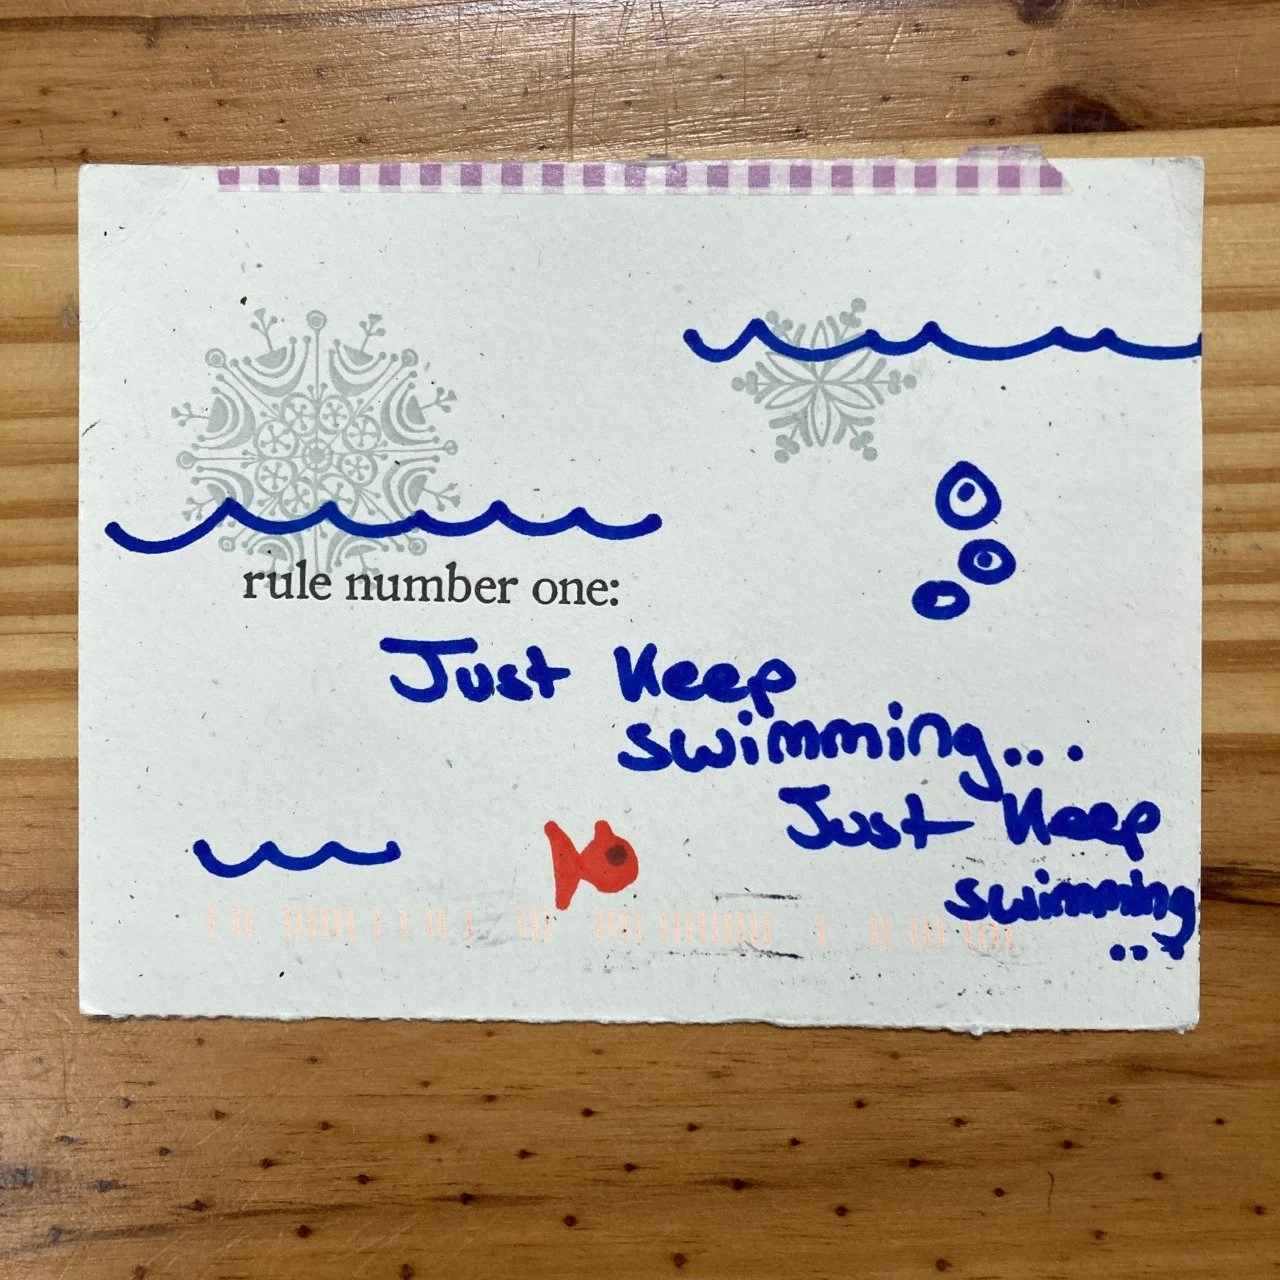 rule number one:
Just Keep
swimming...
Just Keep
swimming
...